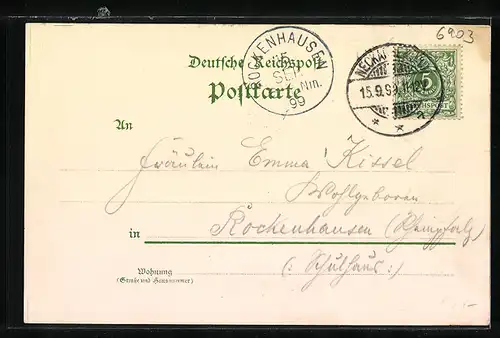 6903
Deutsche Reichspost
Postkarte
ROCKENHAUSEN
15
SEP.
Nm.
99
15.9.99.11-12V
a
5
REICHSPOST
An
Fräulein Emma Kissel
Wohlgeboren
in Rockenhausen (Rheinpfalz)
(: Schulhaus :)
Wohnung
(Straße und Hausnummer)